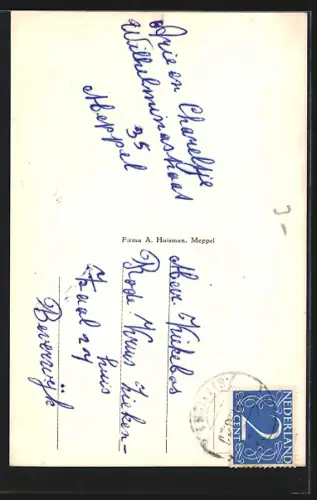 Arie en Chareltje
Wilhelminastraat
35
Meppel
Firma A. Huisman, Meppel
Mevr Kukebos
Rode Kruis Zieken-
huis
Zaal 24
Beverwijk
NEDERLAND
2
CENT
3-